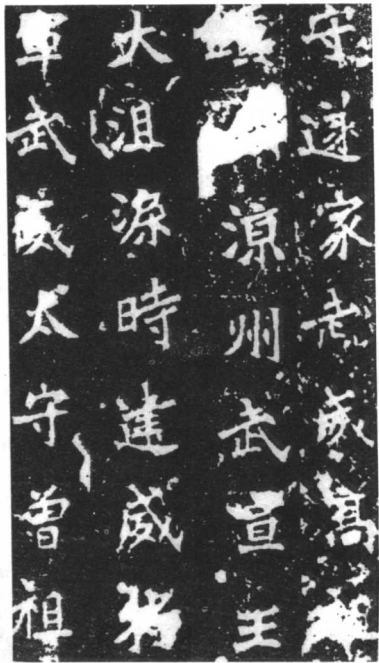 守遂家武威高
涼州武宣王
大沮渠時建威將
軍武威太守曾祖